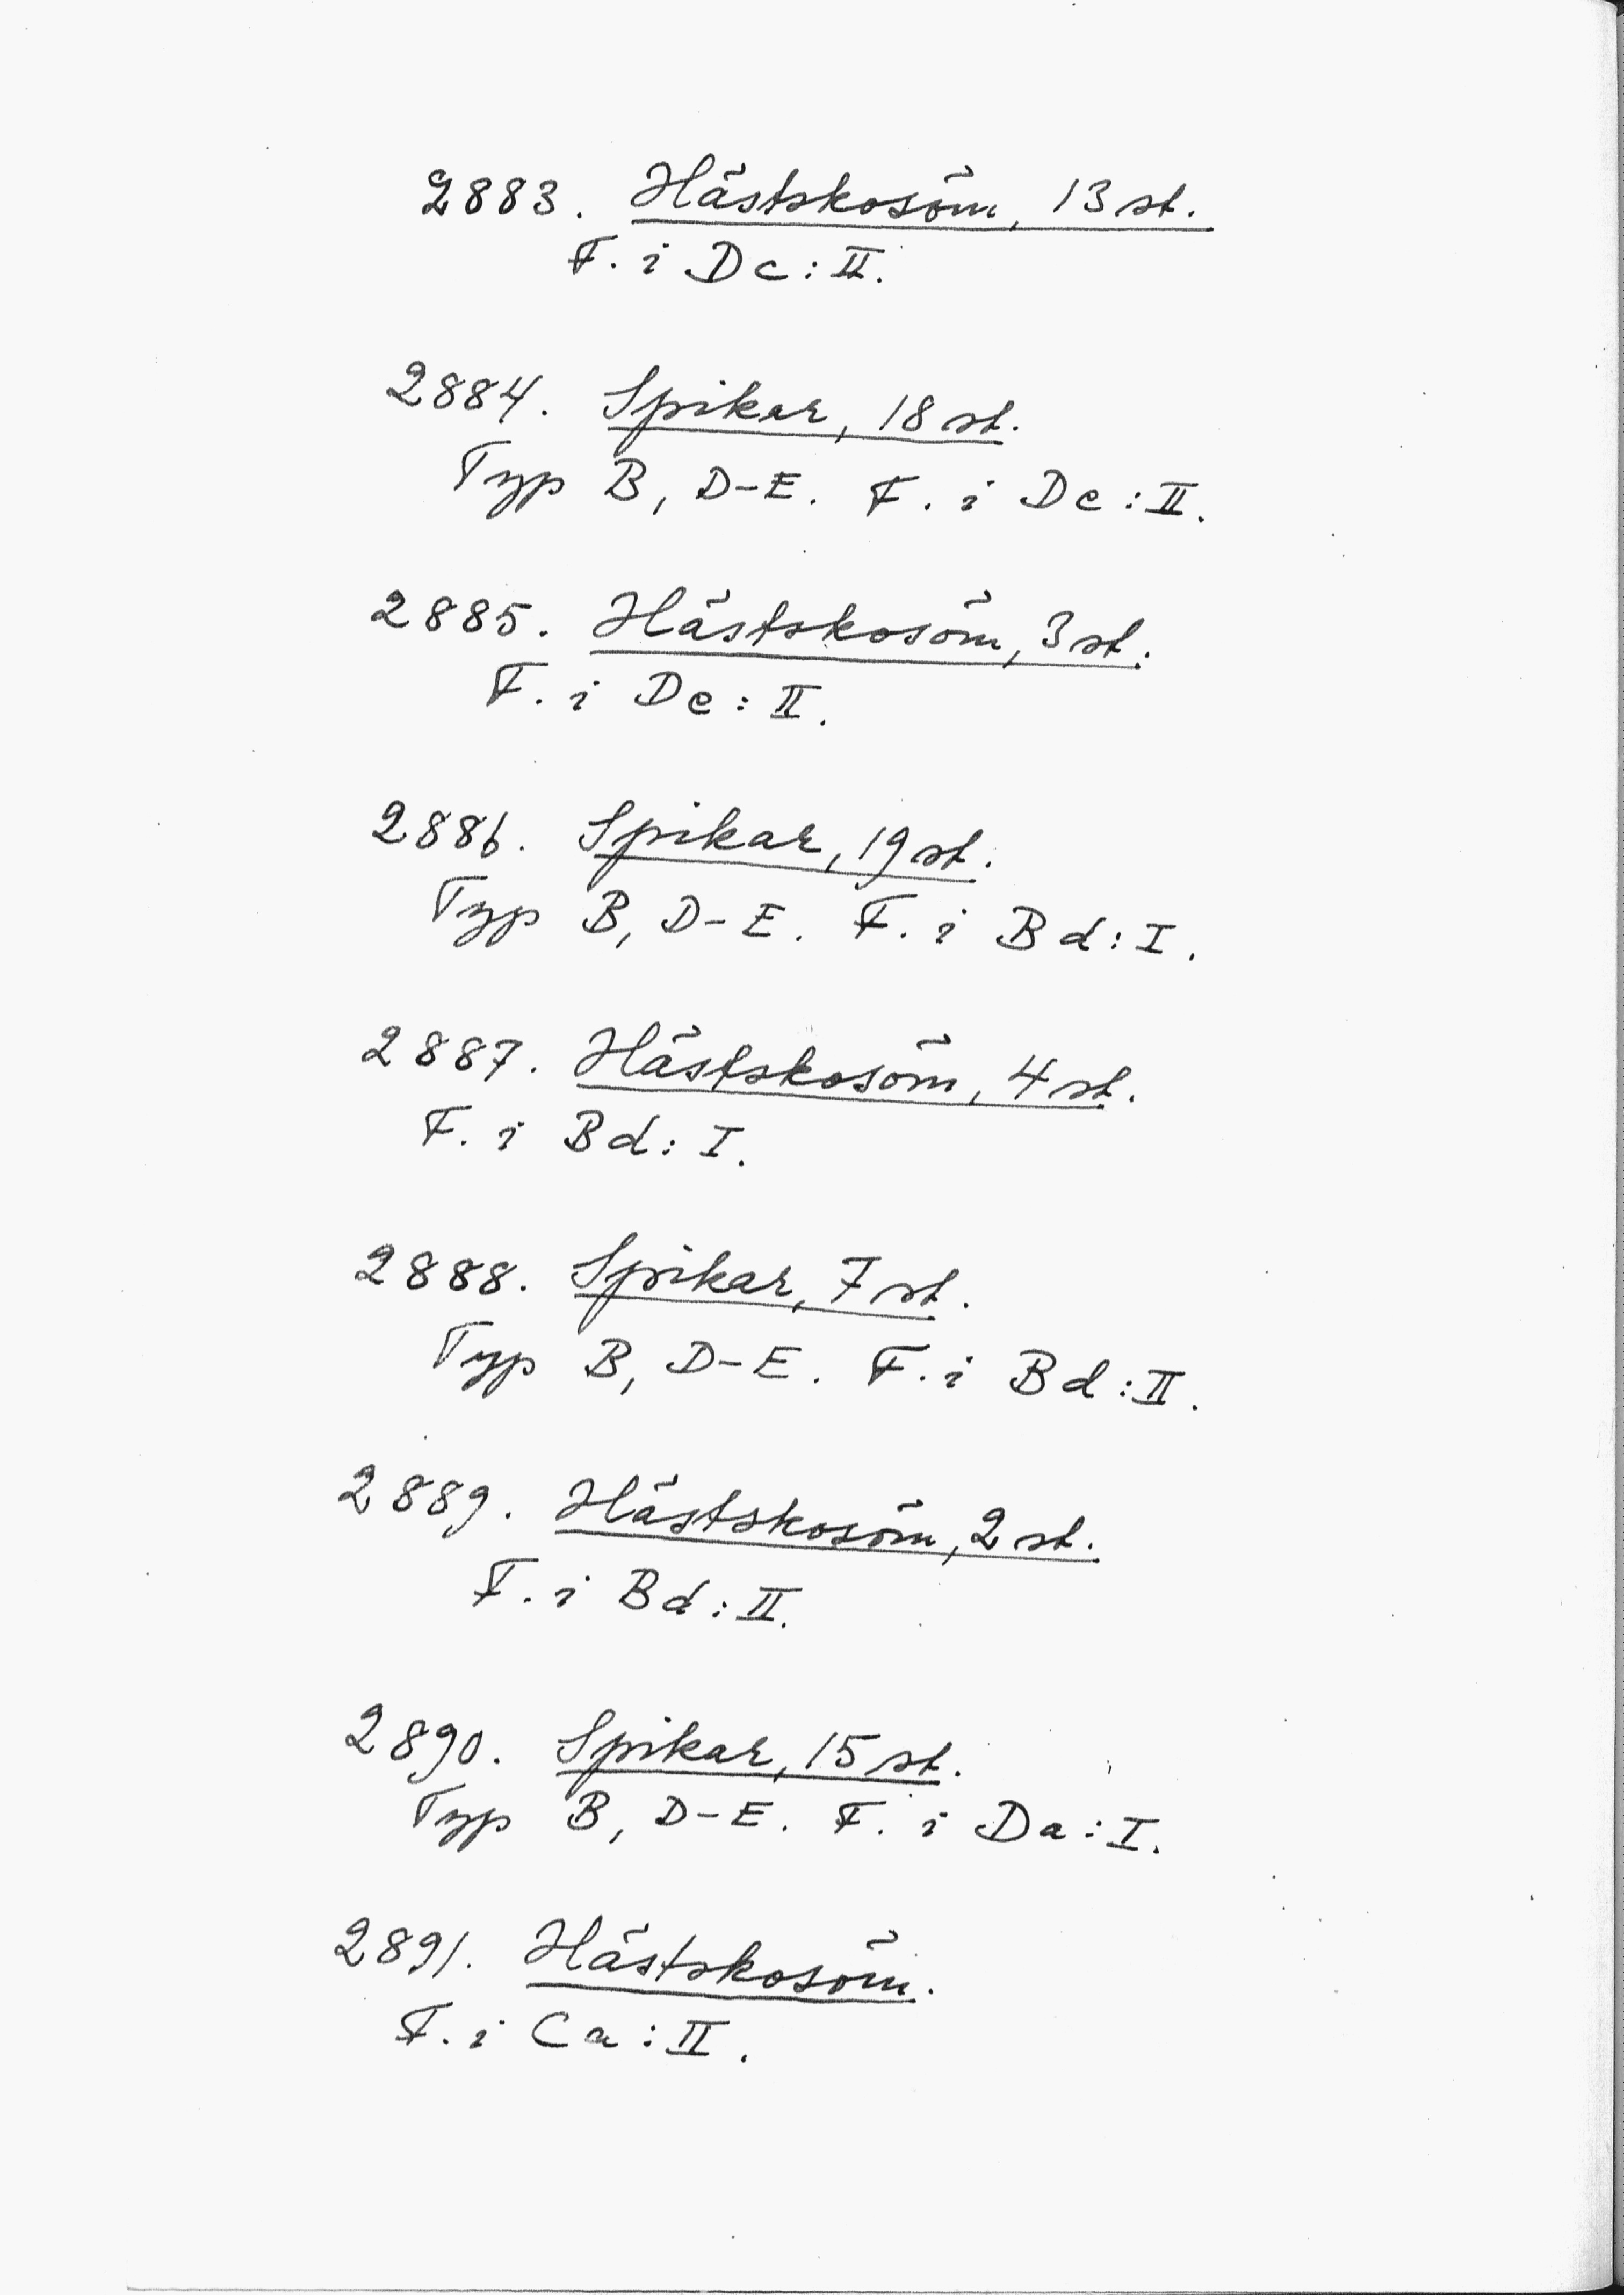 2883. Hästskosöm, 13 st.
F. i Dc: II.
2884. Spikar, 18 st.
Typ B, D-E. F. i De: II.
2885. Hästskosöm, 3 st.
F. i De: II.
2886. Spikar, 19 st.
Typ B, D-E. F. i Bd: I.
2887. Hästskosöm, 4 st.
F. i Bd: I.
2888. Spikar, 7 st.
Typ B, D-E. F. i Bd: II.
2889. Hästskosöm, 2 st.
F. i Bd: II.
2890. Spikar, 15 st.
Typ B, D-E. F. i Da: I.
2891. Hästskosöm.
F. i Ca: II.